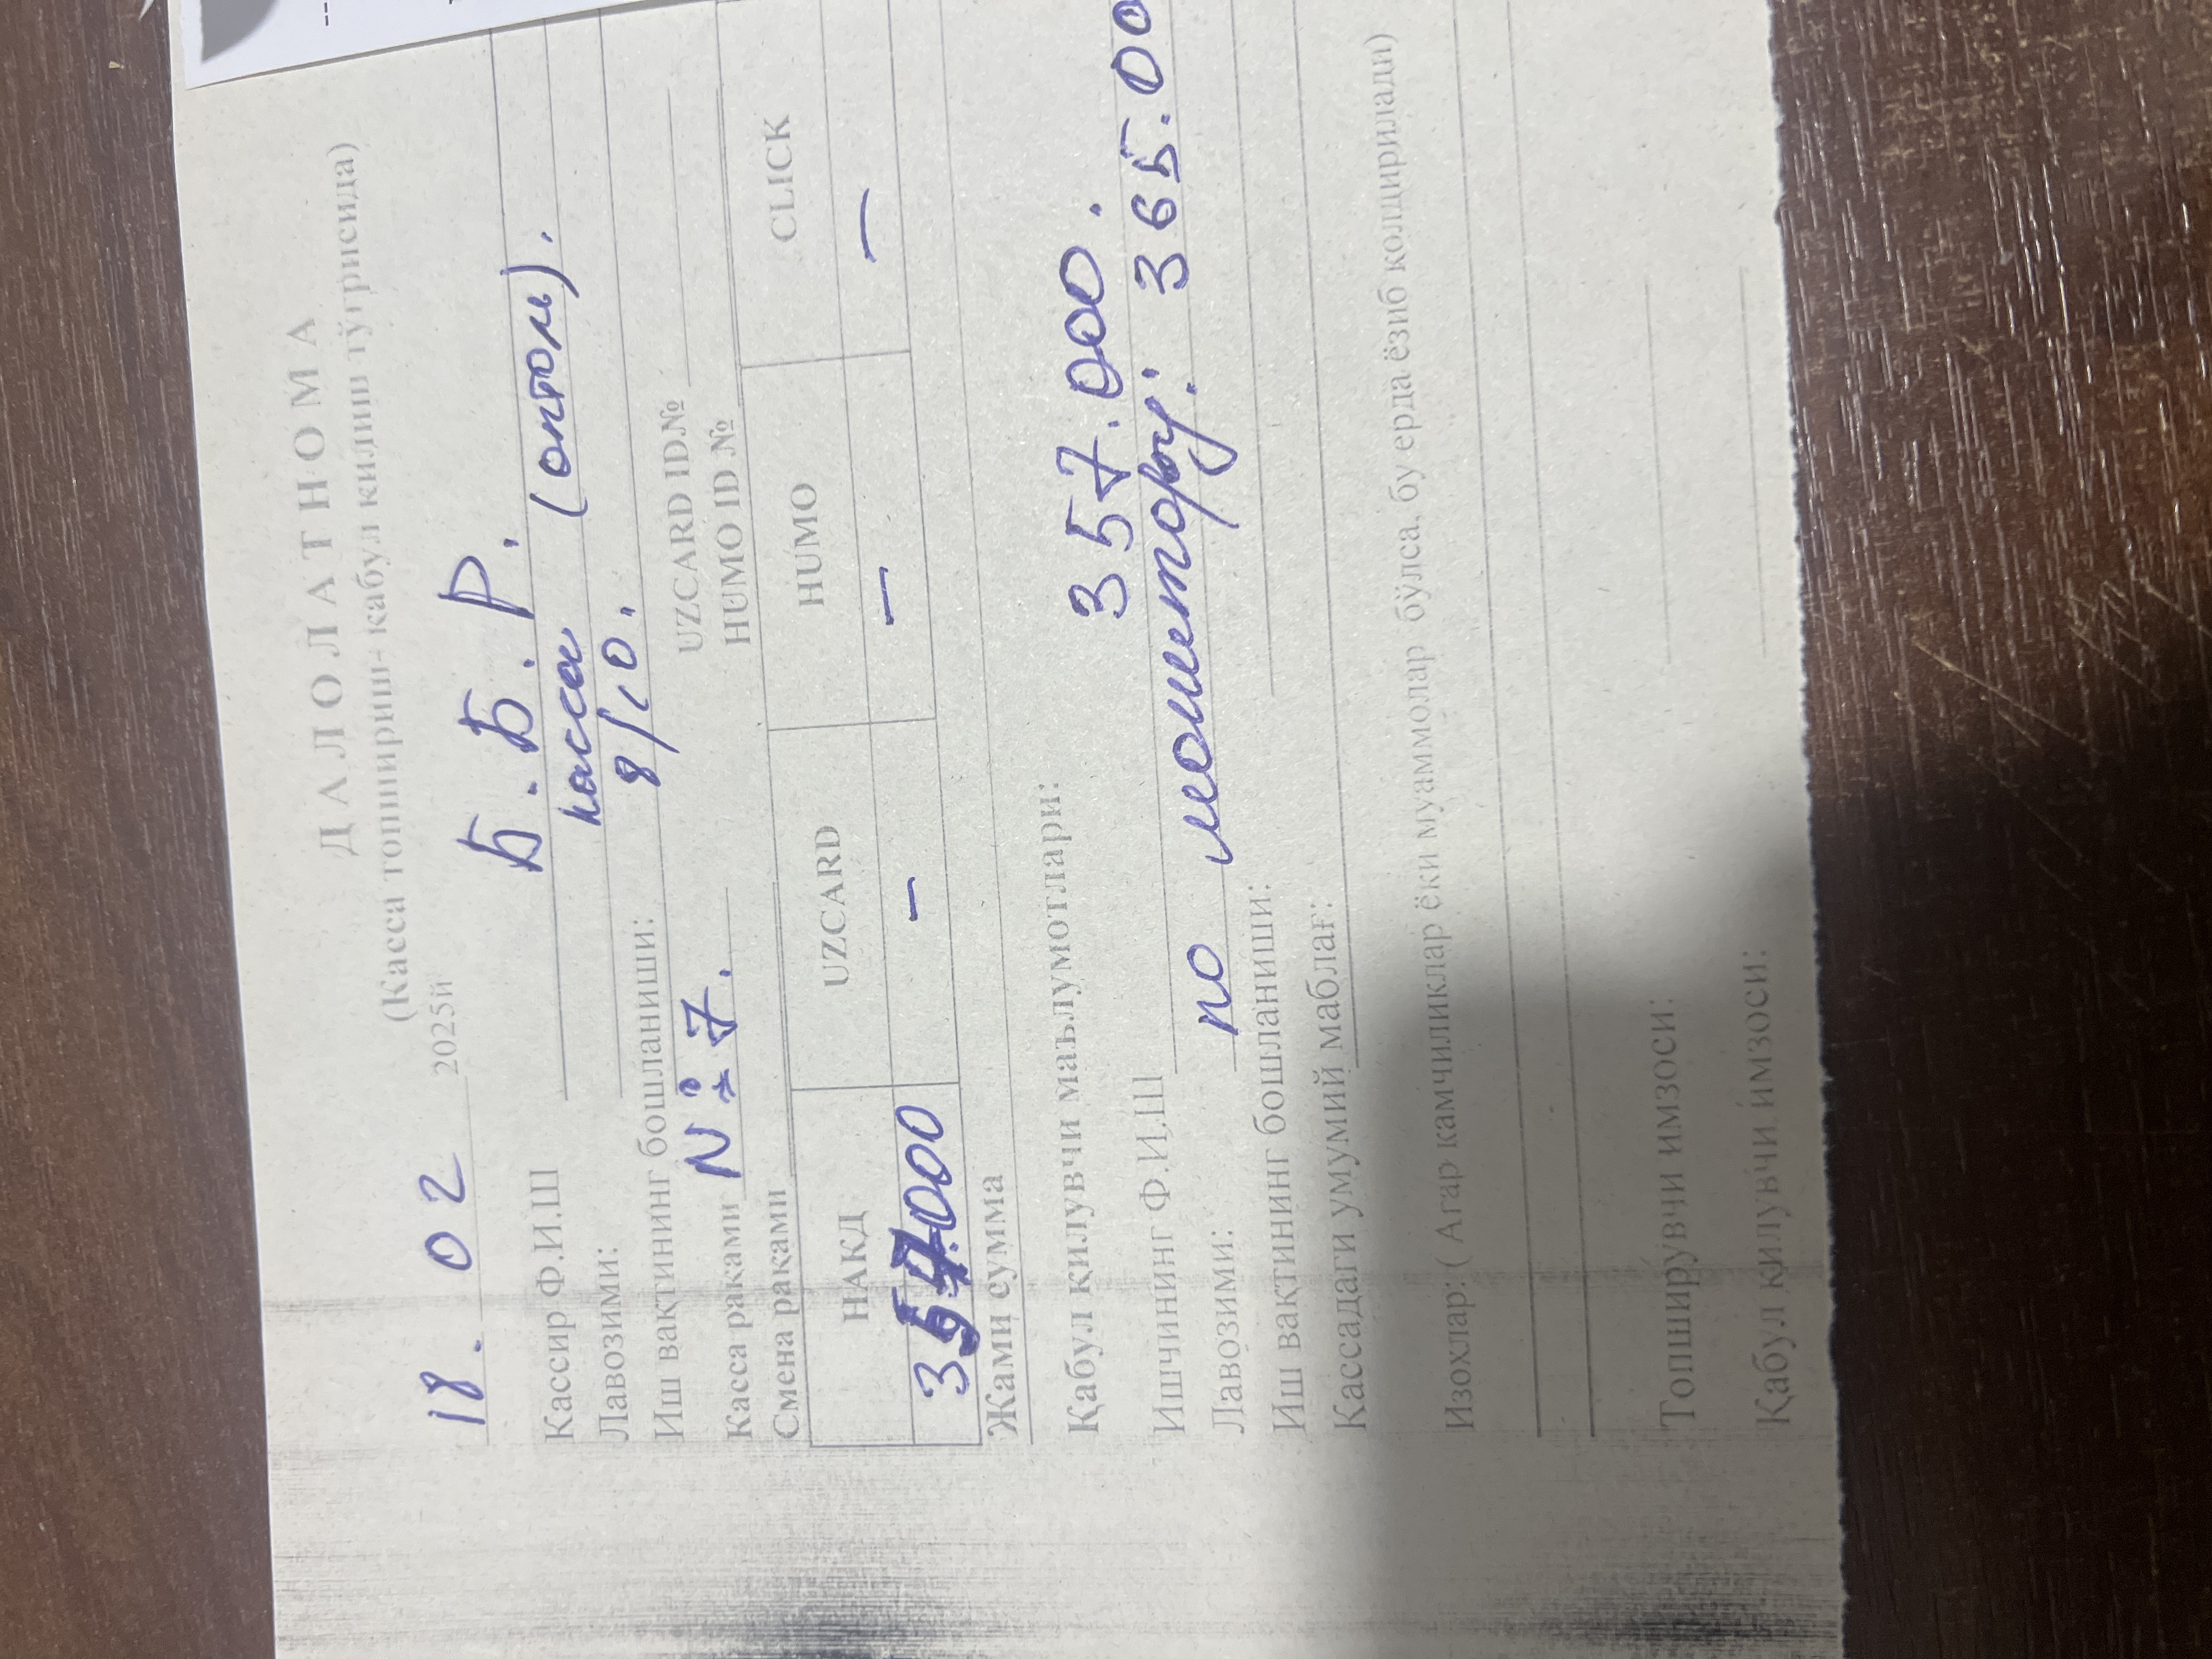 ДАЛОЛАТНОМА
(Касса топшириш- қабул қилиш тўғрисида)
18. 02 2025й
Кассир Ф.И.Ш Б.Б.Р.
Лавозими: касса (оптом).
Иш вақтининг бошланиши: 8/10.
Касса рақами №7. UZCARD ID№
Смена рақами HUMO ID №
НАКД UZCARD HUMO CLICK
357.000 – – –
Жами сумма
Қабул қилувчи маълумотлари:
Ишчининг Ф.И.Ш 357.000.
Лавозими: по монитору: 365.00
Иш вақтининг бошланиши:
Кассадаги умумий маблағ:
Изохлар: ( Агар камчиликлар ёки муаммолар бўлса, бу ерда ёзиб қолдирилади)
Топширувчи имзоси:
Қабул қилувчи имзоси: